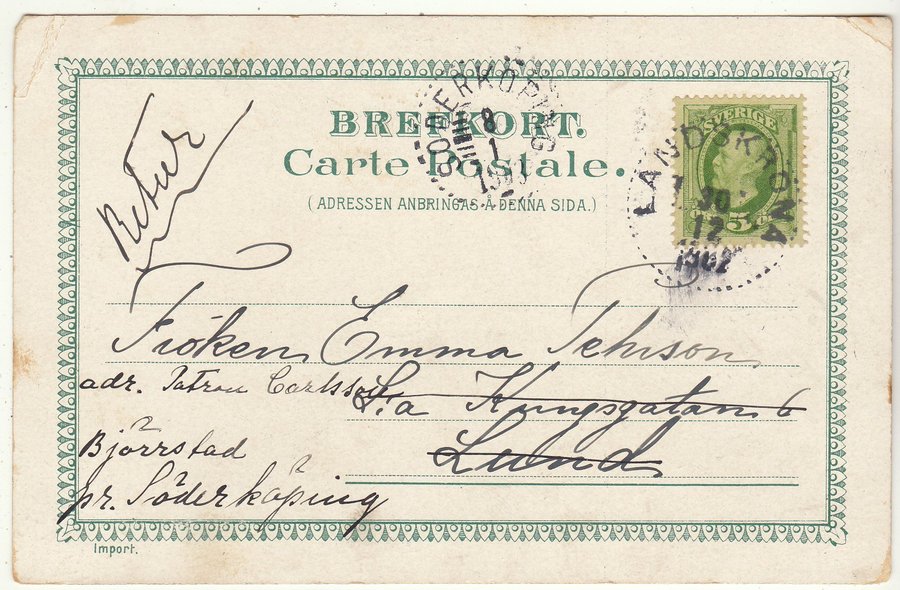 BREFKORT.
Carte Postale.
(ADRESSEN ANBRINGAS Å DENNA SIDA.)
SÖDERKÖPING
8
1
1903
SVERIGE
5
LANDSKRONA
30
12
1902
Retur
Fröken Emma Tehnson
adr. Patron Carlsson
L:a Kungsgatan 6
Lund
Björrstad
pr. Söderköping
Import.